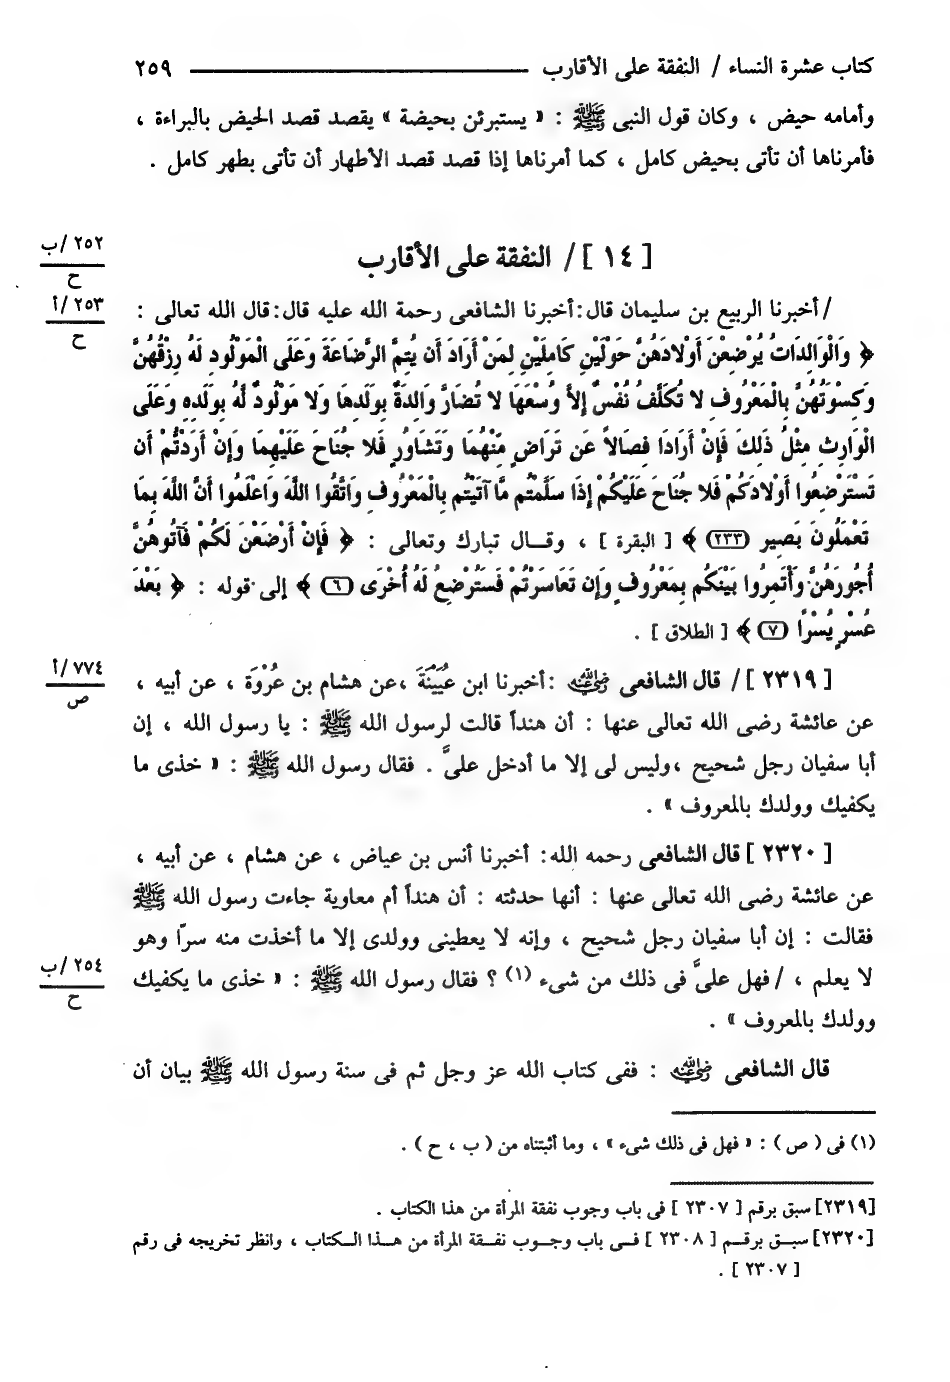 كتاب عشرة النساء / النفقة على الأقارب ٢٥٩
وأمامه حيض ، وكان قول النبى ﷺ : « يستبرئن بحيضة » يقصد قصد الحيض بالبراءة ،
فأمرناها أن تأتى بحيض كامل ، كما أمرناها إذا قصد قصد الأطهار أن تأتى بطهر كامل .
٢٥٢/ ب
ح
[ ١٤ ] / النفقة على الأقارب
٢٥٣ / أ
ح
/ أخبرنا الربيع بن سليمان قال : أخبرنا الشافعى رحمة الله عليه قال : قال الله تعالى :
﴿ وَالْوَالِدَاتُ يُرْضِعْنَ أَوْلادَهُنَّ حَوْلَيْنِ كَامِلَيْنِ لِمَنْ أَرَادَ أَن يُتِمَّ الرَّضَاعَةَ وَعَلَى الْمَوْلُودِ لَهُ رِزْقُهُنَّ
وَكِسْوَتُهُنَّ بِالْمَعْرُوفِ لا تُكَلَّفُ نَفْسٌ إِلاَّ وُسْعَهَا لا تُضَارَّ وَالِدَةٌ بِوَلَدِهَا وَلا مَوْلُودٌ لَّهُ بِوَلَدِهِ وَعَلَى
الْوَارِثِ مِثْلُ ذَلِكَ فَإِنْ أَرَادَا فِصَالاً عَن تَرَاضٍ مِّنْهُمَا وَتَشَاوُرٍ فَلا جُنَاحَ عَلَيْهِمَا وَإِنْ أَرَدتُّمْ أَن
تَسْتَرْضِعُوا أَوْلادَكُمْ فَلا جُنَاحَ عَلَيْكُمْ إِذَا سَلَّمْتُم مَّا آتَيْتُم بِالْمَعْرُوفِ وَاتَّقُوا اللَّهَ وَاعْلَمُوا أَنَّ اللَّهَ بِمَا
تَعْمَلُونَ بَصِير (٢٣٣) ﴾ [ البقرة ] ، وقـال تبارك وتعالى : ﴿ فَإِنْ أَرْضَعْنَ لَكُمْ فَآتُوهُنَّ
أُجُورَهُنَّ وَأْتَمِرُوا بَيْنَكُم بِمَعْرُوفٍ وَإِن تَعَاسَرْتُمْ فَسَتُرْضِعُ لَهُ أُخْرَى (٦) ﴾ إلى قوله : ﴿ بَعْدَ
عُسْرٍ يُسْرًا (٧) ﴾ [ الطلاق ] .
٧٧٤/ أ
ص
[ ٢٣١٩ ] / قال الشافعى رضي الله عنه : أخبرنا ابن عُيَيْنَةَ ، عن هشام بن عُرْوَةَ ، عن أبيه ،
عن عائشة رضى الله تعالى عنها : أن هنداً قالت لرسول الله ﷺ : يا رسول الله ، إن
أبا سفيان رجل شحيح ، وليس لى إلا ما أدخل علىَّ . فقال رسول الله ﷺ : « خذى ما
يكفيك وولدك بالمعروف » .
[ ٢٣٢٠ ] قال الشافعى رحمه الله : أخبرنا أنس بن عياض ، عن هشام ، عن أبيه ،
عن عائشة رضى الله تعالى عنها : أنها حدثته : أن هنداً أم معاوية جاءت رسول الله ﷺ
فقالت : إن أبا سفيان رجل شحيح ، وإنه لا يعطينى وولدى إلا ما أخذت منه سرّا وهو
٢٥٤/ ب
ح
لا يعلم ، / فهل علىَّ فى ذلك من شىء (١) ؟ فقال رسول الله ﷺ : « خذى ما يكفيك
وولدك بالمعروف » .
قال الشافعى رضي الله عنه : ففى كتاب الله عز وجل ثم فى سنة رسول الله ﷺ بيان أن
(١) فى ( ص ) : « فهل فى ذلك شىء » ، وما أثبتناه من ( ب ، ح ) .
[٢٣١٩] سبق برقم [ ٢٣٠٧ ] فى باب وجوب نفقة المرأة من هذا الكتاب .
[٢٣٢٠] سبـق برقـم [ ٢٣٠٨ ] فـى باب وجـوب نفـقة المرأة من هـذا الـكتاب ، وانظر تخريجه فى رقم
[ ٢٣٠٧ ] .